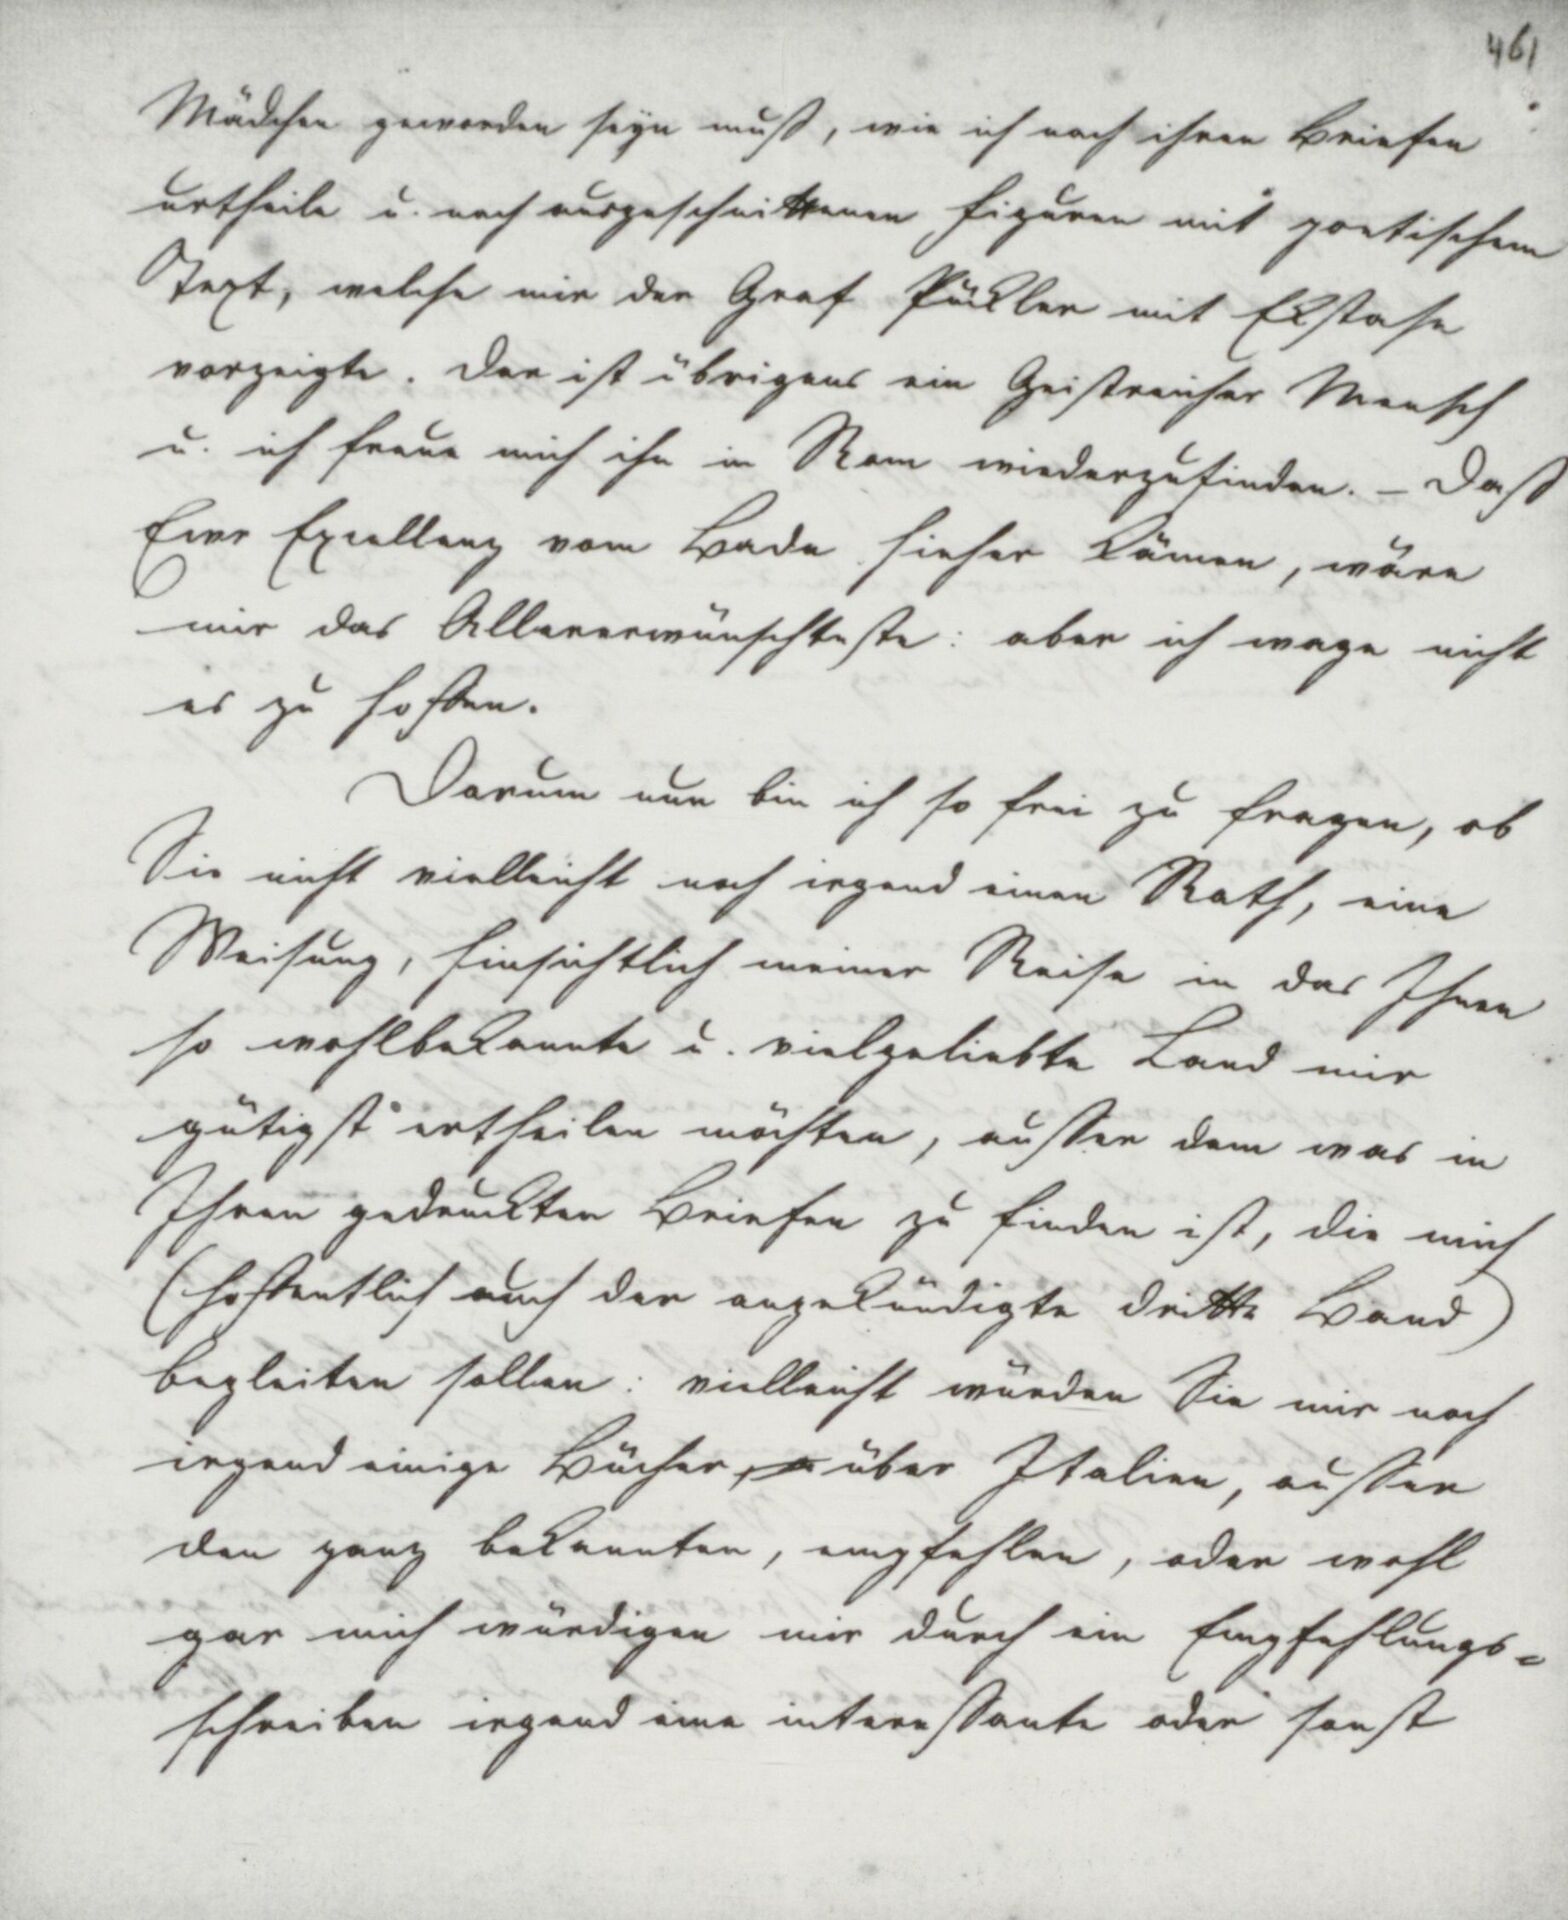 461
Mädchen geworden seyn muß, wie ich nach ihren Briefen
urtheile u. nach ausgeschnittenen Figuren mit poetischem
Text, welche mir der Graf Pückler mit Ekstase
vorzeigte. Der ist übrigens ein Geistreicher Mensch
u. ich freue mich ihn in Rom wiederzufinden. – Daß
Ewr Excellenz vom Bade hieher kämen, wäre
mir das Allererwünschteste: aber ich wage nicht
es zu hoffen.
Darum nun bin ich so frei zu fragen, ob
Sie nicht vielleicht noch irgend einen Rath, eine
Weisung, hinsichtlich meiner Reise in das Ihnen
so wohlbekannte u. vielgeliebte Land mir
gütigst ertheilen möchten, ausser dem was in
Ihren gedruckten Briefen zu finden ist, die mich
(hoffentlich auch der angekündigte dritte Band)
begleiten sollen: vielleicht würden Sie mir noch
irgend einige Bücher, über Italien, ausser
den ganz bekannten, empfehlen, oder wohl
gar mich würdigen mir durch ein Empfehlungs=
schreiben irgend eine interessante oder sonst